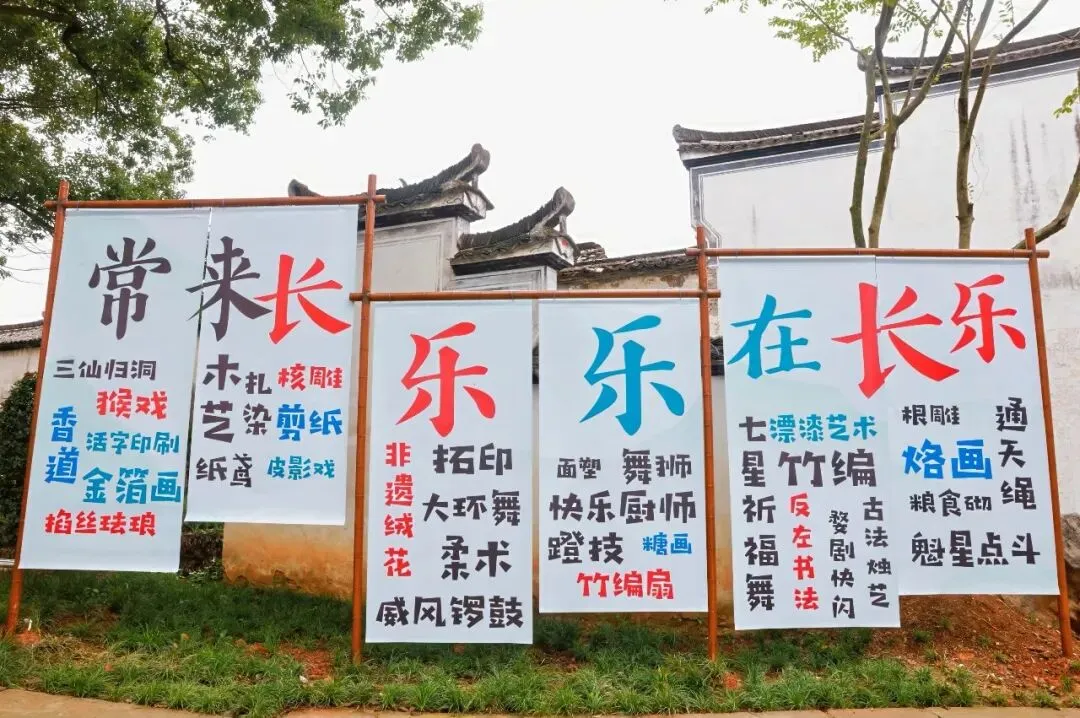 常来长乐 乐在长乐
三仙归洞
猴戏
香道
活字印刷
金箔画
掐丝珐琅
木艺
扎染
核雕
剪纸
纸鸢
皮影戏
非遗绒花
拓印
大环舞
柔术
威风锣鼓
面塑
舞狮
快乐厨师
蹬技
糖画
竹编扇
七星祈福舞
漂漆艺术
竹编
反左书法
婺剧快闪
古法烛艺
根雕
通天绳
烙画
粮食砌
魁星点斗